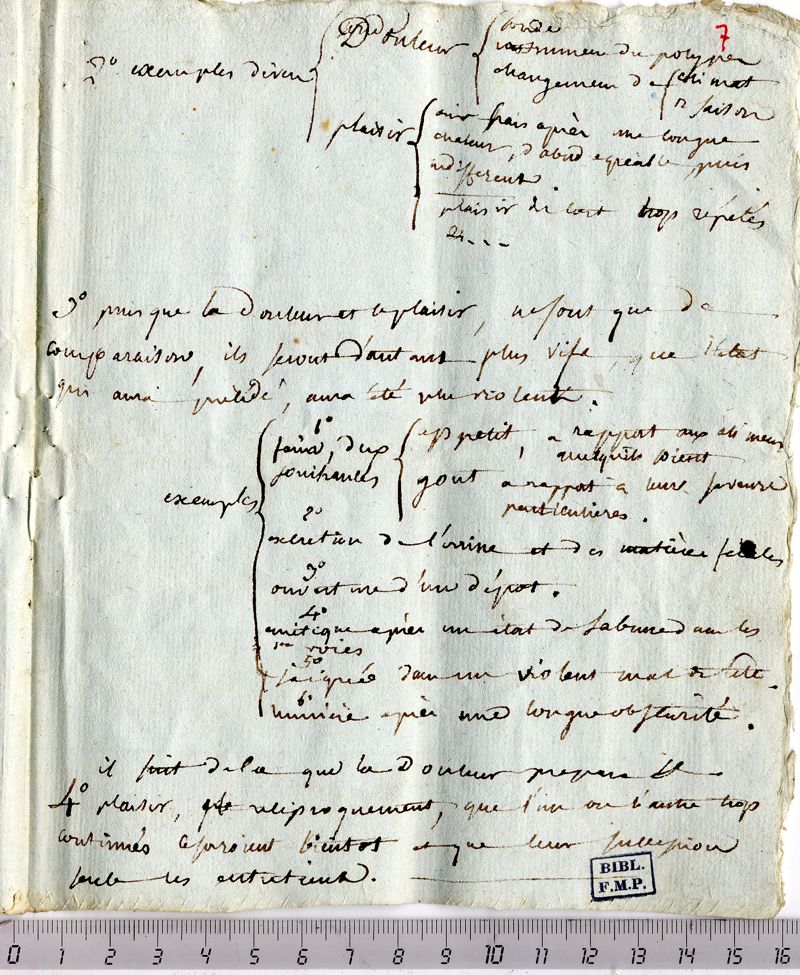 7
Douleur
sonde
instrumen du polype
changemen de climat
saison
2° exemples divers
plaisir
air frais après une longue
chaleur, d'abord agréable, puis
indifferent.
plaisir de trop répétés
&---
3° puisque la Douleur et le plaisir, ne sont que de
comparaison, ils seront d'autant plus vifs, que l'état
qui aura précédé, aura été plus violent.
exemples
1°
faim, deux
jouissances
appetit, a rapport aux alimens
quelquils soient
gout a rapport à leurs saveurs
particulieres.
2°
excretion de l'urine et des matières fécales
3°
ouverture d'un dépot.
4°
emétique après un état de saburre dans les
1res voies
5°
saignée dans un violent mal de tête.
6°
lumière après une longue obscurité.
il suit de la que la Douleur prepare le
4° plaisir, et reciproquement, que l'un ou l'autre trop
continués cesseroient bientot et que leur succession
seule les entretient.
BIBL.
F.M.P.
0 1 2 3 4 5 6 7 8 9 10 11 12 13 14 15 16